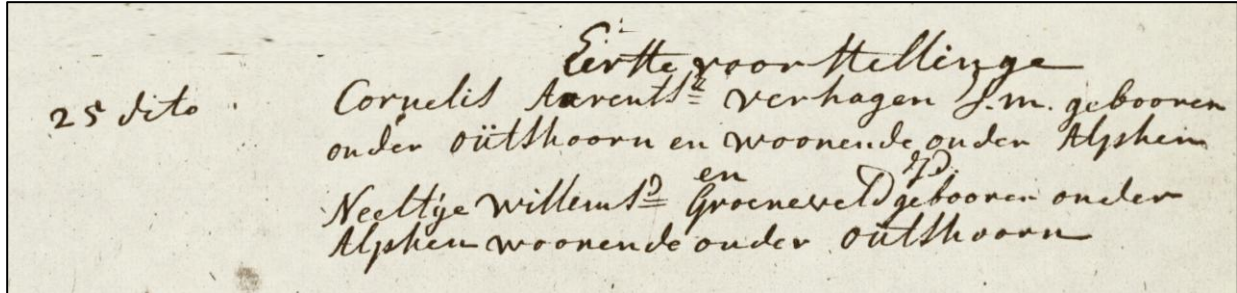 Eerste voorstellinge
25 dito. Cornelis Aarentsz verhagen J.m. gebooren
onder oütshoorn en woonende onder Alphen
en
Neeltÿe willemsD Groeneveld JD gebooren onder
Alphen woonende onder oütshoorn